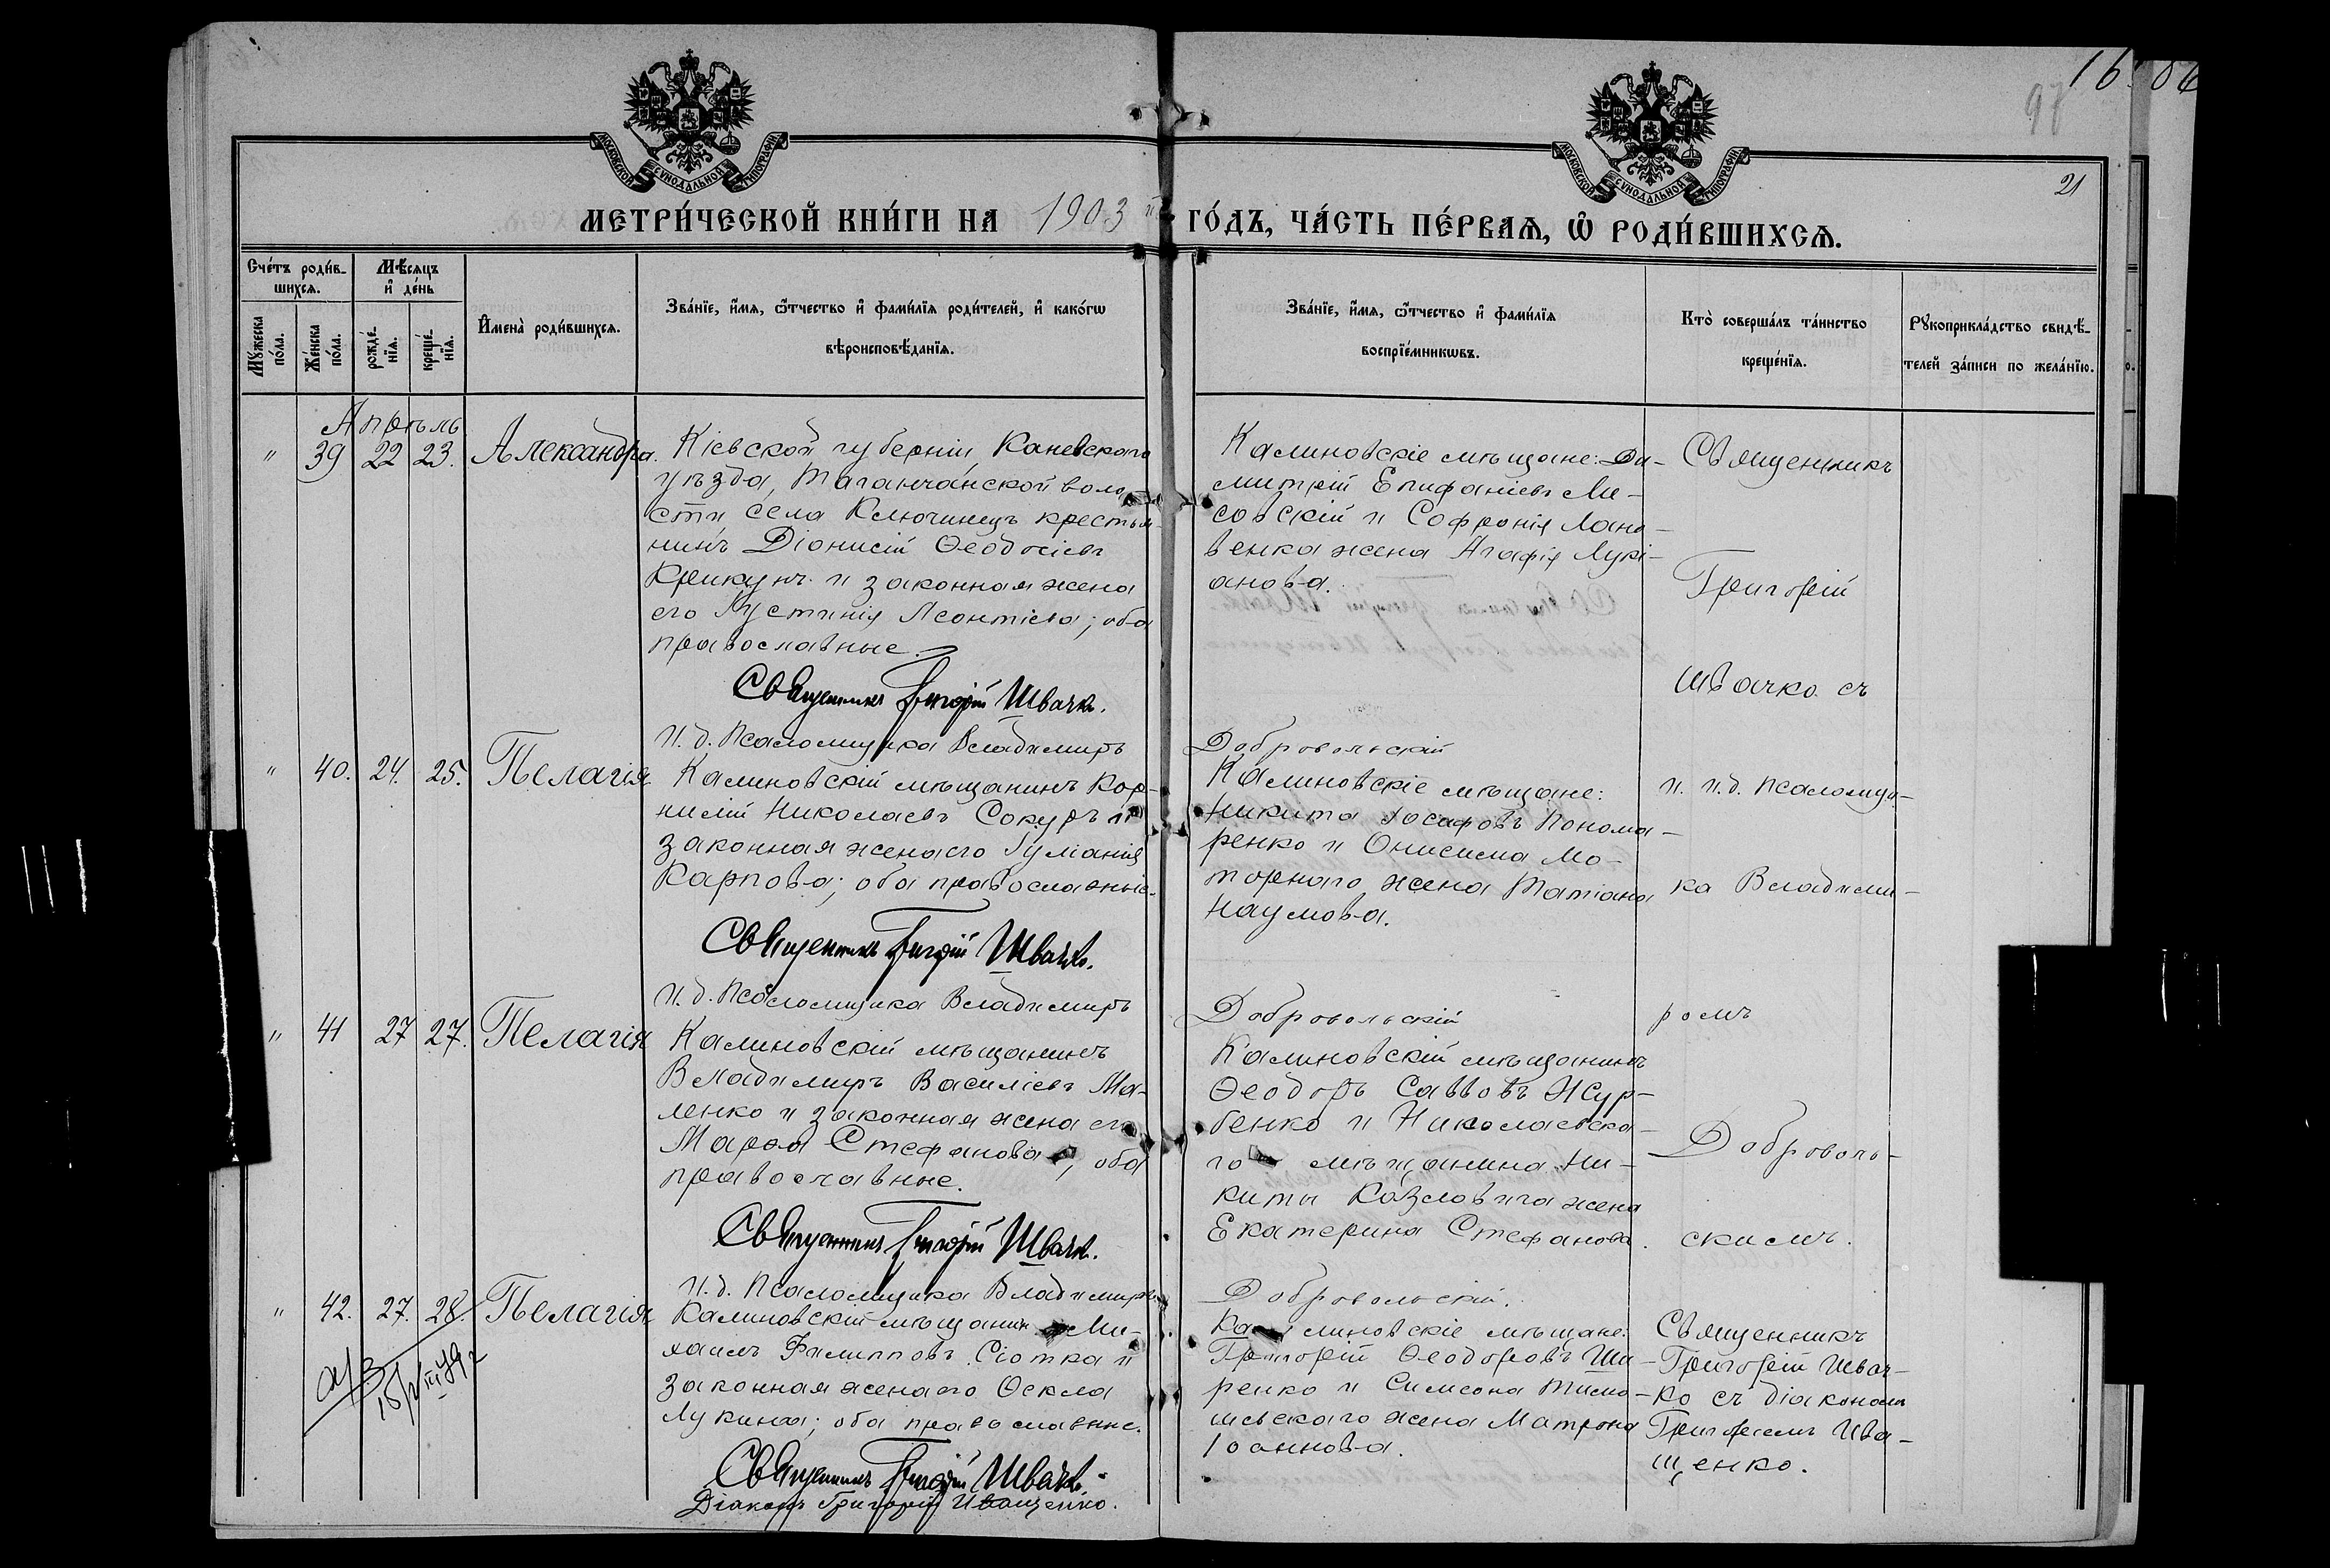 16
97
21
МОСКОВСКОЙ СѴНОДАЛЬНОЙ ТИПОГРАФІИ
МОСКОВСКОЙ СѴНОДАЛЬНОЙ ТИПОГРАФІИ
МЕТРИ́ЧЕСКОЙ КНИ́ГИ НА 1903 ГО́ДЪ, ЧА́СТЬ ПЕ́РВАѦ, Ѡ҆ РОДИ́ВШИХСѦ.
Сче́тъ роди́в-
шихсѧ.
Мꙋ́жеска
по́ла.
Же́нска
по́ла.
Мѣ́сѧцъ
и҆ де́нь
рожде́-
нїѧ.
креще́-
нїѧ.
И҆мена̀ роди́вшихсѧ.
Зва́нїе, и҆́мѧ, ѻ҆́тчество и҆ фами́лїѧ роди́телей, и҆ како́гѡ
вѣроисповѣ́данїѧ.
Зва́нїе, и҆́мѧ, ѻ҆́тчество и҆ фами́лїѧ
воспрїе́мникѡвъ.
Кто̀ соверша́лъ та́инство
креще́нїѧ.
Рꙋкоприкла́дство свидѣ́-
телей за́писи по жела́нїю.
Апрѣль
" 39 22 23. Александра.
Кіевской губерніи, Каневскаго
уѣзда, Таганчанской воло-
сти села Ключинецъ крестья-
нинъ Діонисій Ѳеодосіевъ
Крикунъ и законная жена
его Іустинія Леонтіева; оба
православные.
Священникъ Григорій Швачко.
Калиновскіе мѣщане: Ди-
митрій Епифаніевъ Ли-
совскій и Софронія Лано-
венка жена Агафія Лукі-
анова.
Священникъ
Григорій
Швачко съ
И. д. Псаломщика Владимиръ Добровольскій
" 40. 24. 25. Пелагія
Калиновскій мѣщанинъ Кор-
нилій Николаевъ Сокуръ и
законная жена его Іуліанія
Карпова; оба православные.
Священникъ Григорій Швачко.
Калиновскіе мѣщане:
Никита Іосифовъ Понома-
ренко и Онисима Мо-
торнаго жена Татіана
Наумова.
и. и.д. псаломщи-
ка Владими-
И. д. Псаломщика Владимиръ Добровольскій
ромъ
" 41 27 27. Пелагія
Калиновскій мѣщанинъ
Владимиръ Василіевъ Ма-
ленко и законная жена его
Марѳа Стефанова, оба
православные.
Священникъ Григорій Швачко.
Калиновскій мѣщанинъ
Ѳеодоръ Савовъ Жур-
бенко и Николаевска-
го мѣщанина Ни-
киты Козловича жена
Екатерина Стефанова.
Доброволь-
скимъ.
И. д. Псаломщика Владимиръ Добровольскій.
" 42. 27. 28. Пелагія
Калиновскій мѣщанинъ Ми-
хаилъ Филипповъ Сіотка и
законная жена его Ѳекла
Лукина; оба православные.
Священникъ Григорій Швачко.
Діаконъ Григорій Иващенко.
Калиновскіе мѣщане:
Григорій Ѳеодоровъ Ши-
ренко и Симеона Тимо-
шевскаго жена Матрона
Іоаннова.
Священникъ
Григорій Швач-
ко съ діакономъ
Григоріемъ Ива-
щенко.